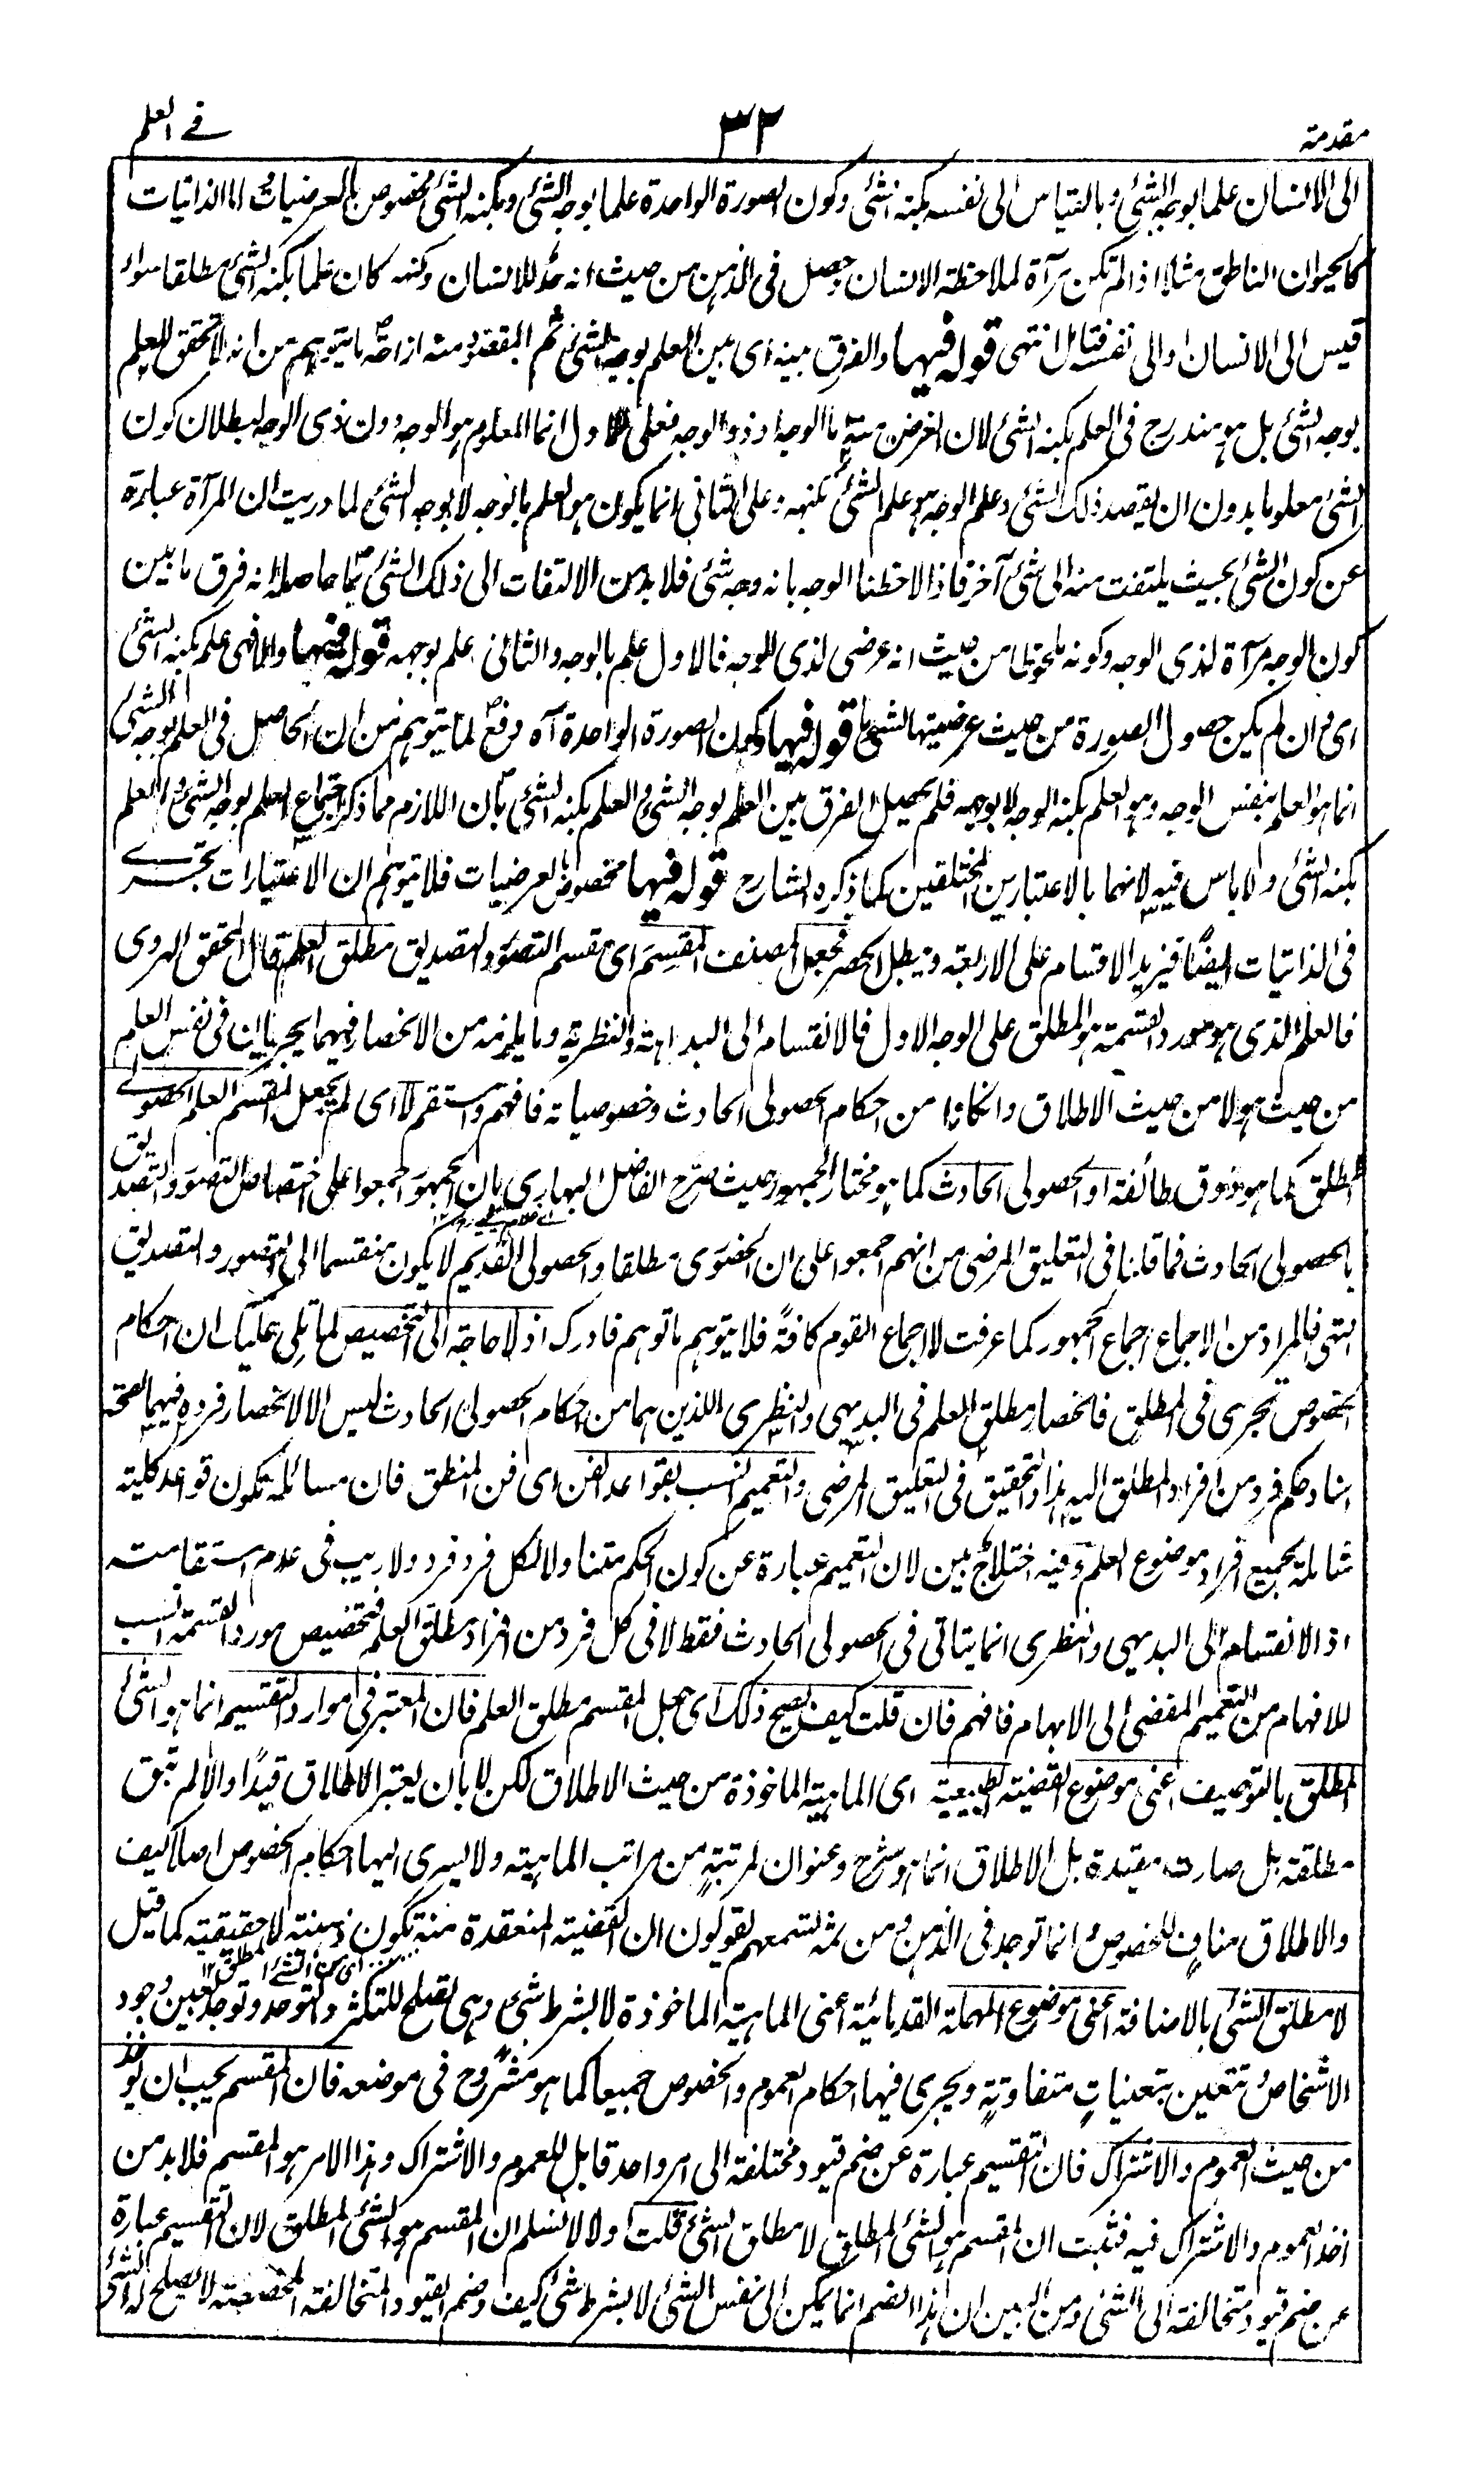 مقدمة
٣٢
في العلم
الى الانسان علما بوجه الشئ وبالقياس الى نفسه بكنه الشئ وكون الصورة الواحدة علما بوجه الشئ وبكنه الشئ مخصوص بالعرضيات اما الذاتيات
كالحيوان الناطق مثلا اذا لم تكن مرآة لملاحظة الانسان وحصل فى الذهن من حيث انه حد للانسان وكنهه كان علما بكنه الشئ مطلقا سواء
قيس الى الانسان او الى نفسه فتامل انتهى قوله فيها والفرق بينه اى بين العلم بوجه الشئ ثم المقصود منه ازاحة ما يتوهم من انه لا تحقق للعلم
بوجه الشئ بل هو مندرج فى العلم بكنه الشئ لان الغرض منه اما الوجه او ذو الوجه فعلى الاول انما المعلوم هو الوجه دون ذى الوجه لبطلان كون
الشئ معلوما بدون ان يقصد ذلك الشئ وعلم الوجه هو علم الشئ بكنهه وعلى الثانى انما يكون هو العلم بالوجه لا بوجه الشئ لما دريت ان المرآة عبارة
عن كون الشئ بحيث يلتفت منه الى شئ آخر فاذا لاحظنا الوجه بانه وجه شئ فلا بد من الالتفات الى ذلك الشئ بما حاصله انه فرق ما بين
كون الوجه مرآة لذى الوجه وكونه ملحوظا من حيث انه عرضى لذى الوجه فالاول علم بالوجه والثانى علم بوجهه قوله فيها والا فهى علم بكنه الشئ
اى وان لم يكن حصول الصورة من حيث عرضيتها لشئ ما قوله فيها وكون الصورة الواحدة آه دفع لما يتوهم من ان الحاصل فى العلم بوجه الشئ
انما هو العلم بنفس الوجه وهو العلم بكنه الوجه لا بوجهه فلم يحصل الفرق بين العلم بوجه الشئ والعلم بكنه الشئ بان اللازم مما ذكر اجتماع العلم بوجه الشئ والعلم
بكنه الشئ ولا باس فيه لانهما بالاعتبارين المختلفين كما ذكره الشارح قوله فيها مخصوص بالعرضيات فلا يتوهم ان الاعتبارات تجرى
فى الذاتيات ايضًا فيزيد الاقسام على الاربعة ويبطل الحصر فجعل المصنف المقسِم اى مقسم التصور والتصديق مطلق العلم قال المحقق الهروى
فالعلم الذى هو مورد القسمة هو المطلق على الوجه الاول فالانقسام الى البداهة والنظرية وما يلزمه من الانحصار فيهما يجريان فى نفس العلم
من حيث هو لا من حيث الاطلاق وان كانا من احكام الحصولى الحادث وخصوصياته فافهم واستقم لا اى لم يجعل المقسم العلم الحصولى
المطلق كما هو ذوق طائفة او الحصولى الحادث كما هو مختار الجمهور حيث صرح الفاضل البهارى بان الجمهور اجمعوا على اختصاص التصور والتصديق
بالحصولى الحادث فما قلنا فى التعليق المرضى من انهم اجمعوا على ان الحضورى مطلقا والحصولى القديم لا يكون منقسما الى التصور والتصديق
انتهى فالمراد من الاجماع اجماع الجمهور كما عرفت لا اجماع القوم كافةً فلا يتوهم ما توهم فادرك اذ لا حاجة الى التخصيص لما تلى عليك ان احكام
الخصوص تجرى فى المطلق فانحصار مطلق العلم فى البديهى والنظرى اللذين هما من احكام الحصولى الحادث ليس الا لانحصار فرده فيهما لصحة
اسناد حكم فردٍ من افراد المطلق اليه هذا والتحقيق فى التعليق المرضى والتعميم انسب بقواعد الفن اى فن المنطق فان مسائله تكون قواعد كلية
شاملة لجميع افراد موضوع العلم وفيه اختلاج بين لان التعميم عبارة عن كون الحكم متناولا لكل فرد فرد ولا ريب فى عدم استقامته
اذ الانقسام الى البديهى والنظرى انما يتاتى فى الحصولى الحادث فقط لا فى كل فرد من افراد مطلق العلم فتخصيص مورد القسمة انسب
للافهام من التعميم المفضى الى الابهام فافهم فان قلت كيف يصح ذلك اى جعل المقسم مطلق العلم فان المعتبر فى موارد التقسيم انما هو الشئ
المطلق بالتوصيف اعنى موضوع القضية الطبيعية اى الماهية الماخوذة من حيث الاطلاق لكن لا بان يعتبر الاطلاق قيدًا والا لم تبق
مطلقة بل صارت مقيدة بل الاطلاق انما هو شرح وعنوان لمرتبةٍ من مراتب الماهية ولا يسرى اليها احكام الخصوص اصلا كيف
والاطلاق منافٍ للخصوص وانما توجد فى الذهن ومن ثمه تسمعهم يقولون ان القضية المنعقدة منه تكون ذهنية لا حقيقية كما قيل
اى من الشئ المطلق ١٢
لا مطلق الشئ بالاضافة اعنى موضوع المهملة القدمائية اعنى الماهية الماخوذة لا بشرط شئ وهى تصلح للتكثر والتوحد وتوجد بعين وجود
الاشخاص وتتعين بتعينات متفاوتةٍ ويجرى فيها احكام العموم والخصوص جميعا كما هو مشروح فى موضعه فان المقسم يجب ان يوخذ
من حيث العموم والاشتراك فان التقسيم عبارة عن ضم قيود مختلفة الى امر واحد قابل للعموم والاشتراك وهذا الامر هو المقسم فلا بد من
اخذ العموم والاشتراك فيه فثبت ان المقسم هو الشئ المطلق لا مطلق الشئ قلت اولا لا نسلم ان المقسم هو الشئ المطلق لان التقسيم عبارة
عن ضم قيود متخالفة الى الشئ ومن البين ان هذا الضم انما يمكن الى نفس الشئ لا بشرط شئ كيف وضم القيود المتخالفة المخصصة لا يصلح له الشئ